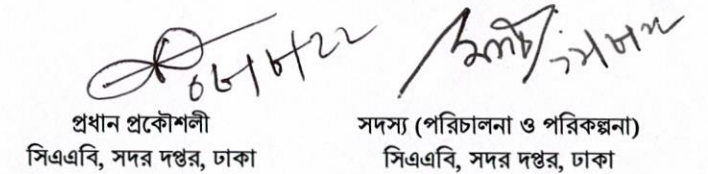 প্রধান প্রকৌশলী
সিএএবি, সদর দপ্তর, ঢাকা
সদস্য (পরিচালনা ও পরিকল্পনা)
সিএএবি, সদর দপ্তর, ঢাকা